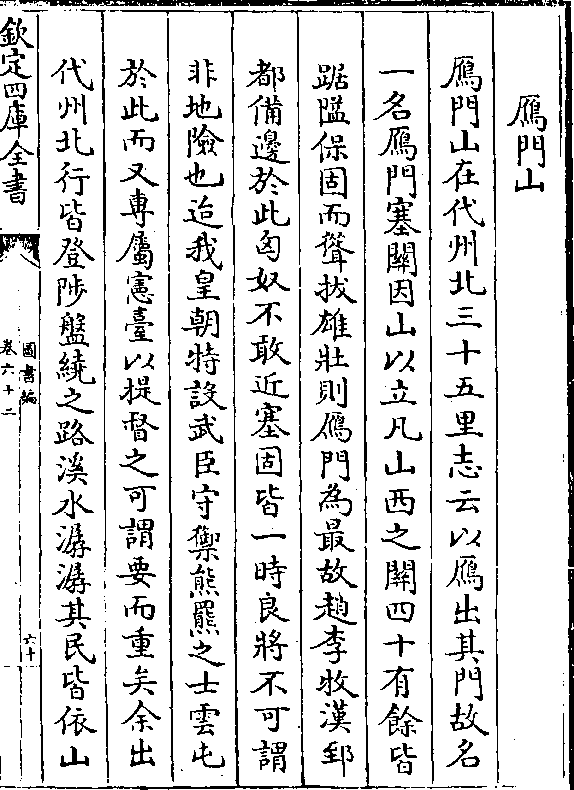 鴈門山
鴈門山在代州北三十五里志云以鴈出其門故名
一名鴈門塞關因山以立凡山西之關四十有餘皆
踞隘保固而聳拔雄壯則鴈門為最故趙李牧漢郅
都備邊於此匈奴不敢近塞固皆一時良將不可謂
非地險也迨我皇朝特設武臣守禦熊羆之士雲屯
於此而又專屬憲臺以提督之可謂要而重矣余出
代州北行皆登陟盤繞之路溪水潺潺其民皆依山
欽定四庫全書
圖書編
卷六十二
六十